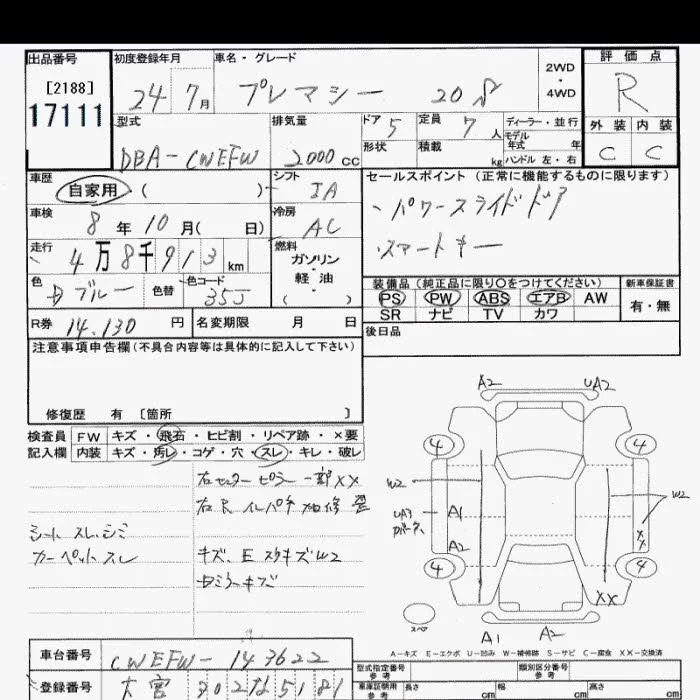 出品番号
[2188]
17111
初度登録年月
24年 7月
車名・グレード
プレマシー 20S
2WD
・
4WD
評価点
R
外装 内装
C C
型式
DBA-CWEFW
排気量
2000cc
ドア 5
定員 7人
形状
積載 kg
ディーラー・並行
モデル年式 年
ハンドル 左・右
車歴
自家用 ( )
シフト
IA
車検
8年 10月( 日)
冷房
AC
走行
4万8千913km
燃料
ガソリン
・
軽油
( )
色
ブルー
色替
色コード
35J
R券 14,130円
名変期限 月 日
セールスポイント (正常に機能するものに限ります)
・パワースライドドア
・スマートキー
装備品 (純正品に限り〇をつけてください)
PS PW ABS エアB AW
SR ナビ TV カワ
新車保証書
有・無
後日品
注意事項申告欄(不具合内容等は具体的に記入して下さい)
修復歴 有 〔箇所 〕
検査員記入欄
FW キズ・飛石・ヒビ割・リペア跡・×要
内装 キズ・汚レ・コゲ・穴・スレ・キレ・破レ
シート スレ、シミ
カーペットスレ
右センターピラー一部XX
キズ、E スリキズW2
ミラーキズ
A2 UA2
4 4
W2 W2
UA3
A1
A2
XX
4 4
XX
スペア
A1 A2
A-キズ E-エクボ U-凹み W-補修跡 S-サビ C-腐食 XX-交換済
車台番号
CWEFW-143622
登録番号
大宮 302 な 5181
型式指定番号
参考
類別区分番号
参考
車庫証明用
参考
長さ cm
幅 cm
高さ cm